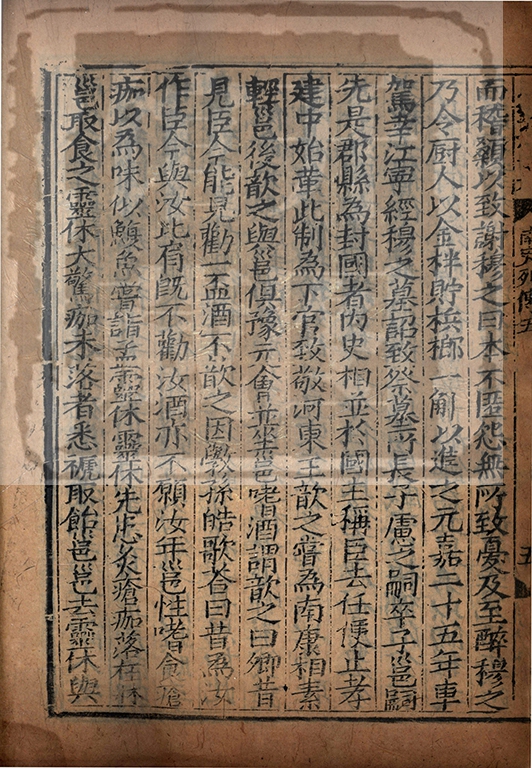 南史列傳五
五
而稽顙以致謝穆之曰本不匿怨無所致憂及至醉穆之
乃令厨人以金柈貯梹榔一斛以進之元嘉二十五年車
駕幸江寧經穆之墓詔致祭墓所長子慮之嗣卒子邕嗣
先是郡縣為封國者內史相並於國主稱臣去任便止孝
建中始革此制為下官致敬河東王歆之嘗為南康相素
輕邕後歆之與邕俱豫元會並坐邕嗜酒謂歆之曰卿昔
見臣今能見勸一盃酒不歆之因斆孫皓歌荅曰昔為汝
作臣今與汝比肩既不勸汝酒亦不願汝年邕性嗜食瘡
痂以為味似鰒魚嘗詣孟靈休靈休先患灸瘡痂落在牀
邕取食之靈休大驚痂未落者悉褫取飴邕邕去靈休與